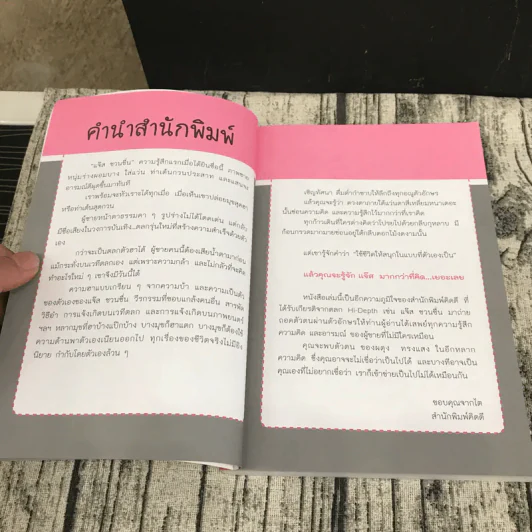 คำนำสำนักพิมพ์
"แจ๊ส ชวนชื่น" ความรู้สึกแรกเมื่อได้ยินชื่อนี้ ภาพชาย
หนุ่มร่างผอมบาง ใส่แว่น ท่าเต้นกวนประสาท และแสนจะ
อารมณ์ดีผุดขึ้นมาทันที
เขาพร้อมจะหัวเราะได้ทุกเมื่อ เมื่อเห็นเขาปล่อยมุขชุดฮา
หรือท่าเต้นสุดกวน
ผู้ชายหน้าตาธรรมดา ๆ รูปร่างไม่ได้โดดเด่น แต่กลับ
มีชื่อเสียงในวงการบันเทิง...ตลกรุ่นใหม่ที่สร้างความสำเร็จด้วยตัว
เอง
กว่าจะเป็นตลกตัวฮาได้ ผู้ชายคนนี้ต้องเสียน้ำตามาก่อน
แม้กระทั่งบนเวทีตลกเอง แต่เพราะความกล้า และไม่กลัวที่จะคิด
ทำอะไรใหม่ ๆ เขาจึงมีวันนี้ได้
ความฮาแบบเกรียน ๆ จากความบ้า และความเป็นตัว
ของตัวเองของแจ๊ส ชวนชื่น วีรกรรมที่ชอบแกล้งคนอื่น สารพัด
วิธีฮา การแจ้งเกิดบนเวทีตลก และการแจ้งเกิดบนภาพยนตร์
ฯลฯ หลากมุขที่ฮาบ้างแป๊กบ้าง บางมุขก็ฮาแตก บางมุขก็ต้องใช้
ความด้านพาตัวเองเนียนออกไป ทุกเรื่องของชีวิตจริงไม่มีอิง
นิยาย กำกับโดยตัวเองล้วน ๆ
เชิญทัศนา ดื่มด่ำกำซาบให้ลึกถึงทุกอณูตัวอักษร
แล้วคุณจะรู้ว่า ดวงตาภายใต้แว่นตาสีเหลี่ยมหนาเตอะ
นั้นซ่อนความคิด และความรู้สึกไว้มากกว่าที่เราคิด
ทุกก้าวเดินที่ใครต่างคิดว่าโปรยไปด้วยกลีบกุหลาบ มี
ก้อนกรวดมากมายซ่อนอยู่ใต้กลีบดอกไม้งดงามนั้น
แต่เขารู้จักคำว่า "ใช้ชีวิตให้สนุกในแบบที่ตัวเองเป็น"
แล้วคุณจะรู้จัก แจ๊ส มากกว่าที่คิด...เยอะเลย
หนังสือเล่มนี้เป็นอีกความภูมิใจของสำนักพิมพ์คิดดี ที่
ได้รับเกียรติจากตลก Hi-Depth เช่น แจ๊ส ชวนชื่น มาถ่าย
ถอดตัวตนผ่านตัวอักษรให้ท่านผู้อ่านได้เสพย์ทุกความรู้สึก
ความคิด และอารมณ์ ของผู้ชายที่ไม่มีใครเหมือน
คุณจะพบตัวตน ของผดุง ทรงแสง ในอีกหลาก
ความคิด ซึ่งคุณอาจจะไม่เชื่อว่าเป็นไปได้ และบางทีอาจเป็น
คุณเองที่ไม่อยากเชื่อว่า เราก็เข้าข่ายเป็นไปไม่ได้เหมือนกัน
ขอบคุณจากใจ
สำนักพิมพ์คิดดี